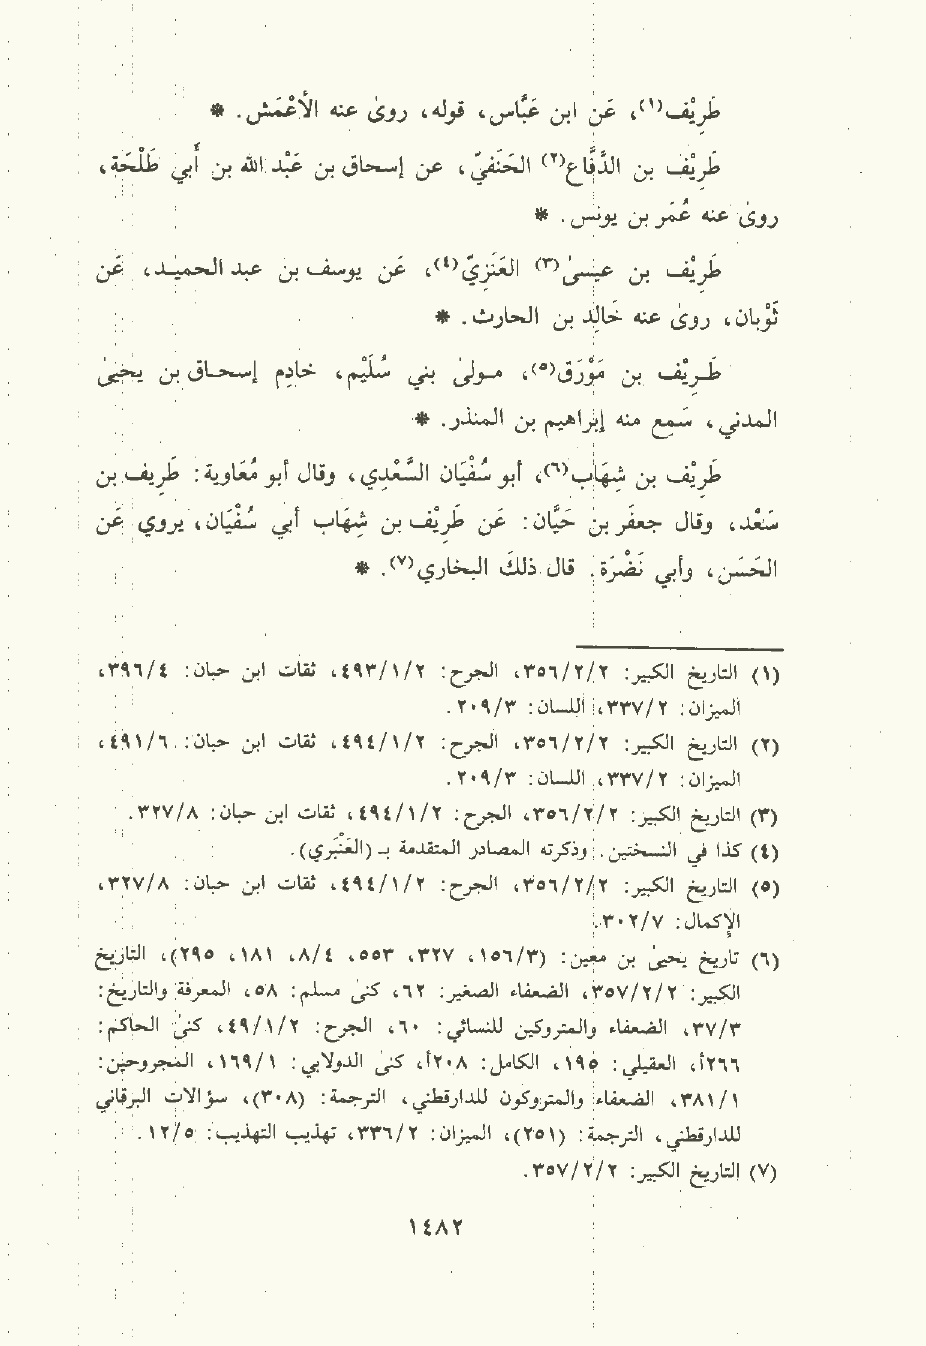 طَرِيْف(١)، عَن ابن عَبَّاس، قوله، روىٰ عنه الأَعْمَش. *
طَرِيْف بن الدَّفَّاع(٢) الحَنَفيّ، عن إسحاق بن عَبْد الله بن أَبي طَلْحَة،
روىٰ عنه عُمَر بن يونس. *
طَرِيْف بن عيسىٰ(٣) العَنَزِيّ(٤)، عَن يوسف بن عبد الحميد، عَن
ثَوْبان، روىٰ عنه خَالِد بن الحارث. *
طَرِيْف بن مَوْرَق(٥)، مولىٰ بني سُلَيْم، خادِم إسحاق بن يحيىٰ
المدني، سَمِع منه إبراهيم بن المنذر. *
طَرِيْف بن شِهَاب(٦)، أبو سُفْيَان السَّعْدِي، وقال أبو مُعَاوية: طَرِيف بن
سَعْد، وقال جعفَر بن حَيَّان: عَن طَرِيْف بن شِهَاب أبي سُفْيَان، يروي عَن
الحَسَن، وأبي نَضْرَة. قال ذلك البخاري(٧). *
(١) التاريخ الكبير: ٢/٢/٣٥٦، الجرح: ٢/١/٤٩٣، ثقات ابن حبان: ٤/٣٩٦،
الميزان: ٢/٣٣٧، اللسان: ٣/٢٠٩.
(٢) التاريخ الكبير: ٢/٢/٣٥٦، الجرح: ٢/١/٤٩٤، ثقات ابن حبان: ٦/٤٩١،
الميزان: ٢/٣٣٧، اللسان: ٣/٢٠٩.
(٣) التاريخ الكبير: ٢/٢/٣٥٦، الجرح: ٢/١/٤٩٤، ثقات ابن حبان: ٨/٣٢٧.
(٤) كذا في النسختين. وذكرته المصادر المتقدمة بـ (العَنْبَري).
(٥) التاريخ الكبير: ٢/٢/٣٥٦، الجرح: ٢/١/٤٩٤، ثقات ابن حبان: ٨/٣٢٧،
الإكمال: ٧/٣٠٢.
(٦) تاريخ يحيىٰ بن معين: (٣/١٥٦، ٣٢٧، ٥٥٣، ٤/٨، ١٨١، ٢٩٥)، التاريخ
الكبير: ٢/٢/٣٥٧، الضعفاء الصغير: ٦٢، كنىٰ مسلم: ٥٨، المعرفة والتاريخ:
٣/٣٧، الضعفاء والمتروكين للنسائي: ٦٠، الجرح: ٢/١/٤٩، كنىٰ الحاكم:
٢٦٦أ، العقيلي: ١٩٥، الكامل: ٢٠٨أ، كنىٰ الدولابي: ١/١٦٩، المجروحين:
١/٣٨١، الضعفاء والمتروكون للدارقطني، الترجمة: (٣٠٨)، سؤالات البرقاني
للدارقطني، الترجمة: (٢٥١)، الميزان: ٢/٣٣٦، تهذيب التهذيب: ٥/١٢.
(٧) التاريخ الكبير: ٢/٢/٣٥٧.
١٤٨٢